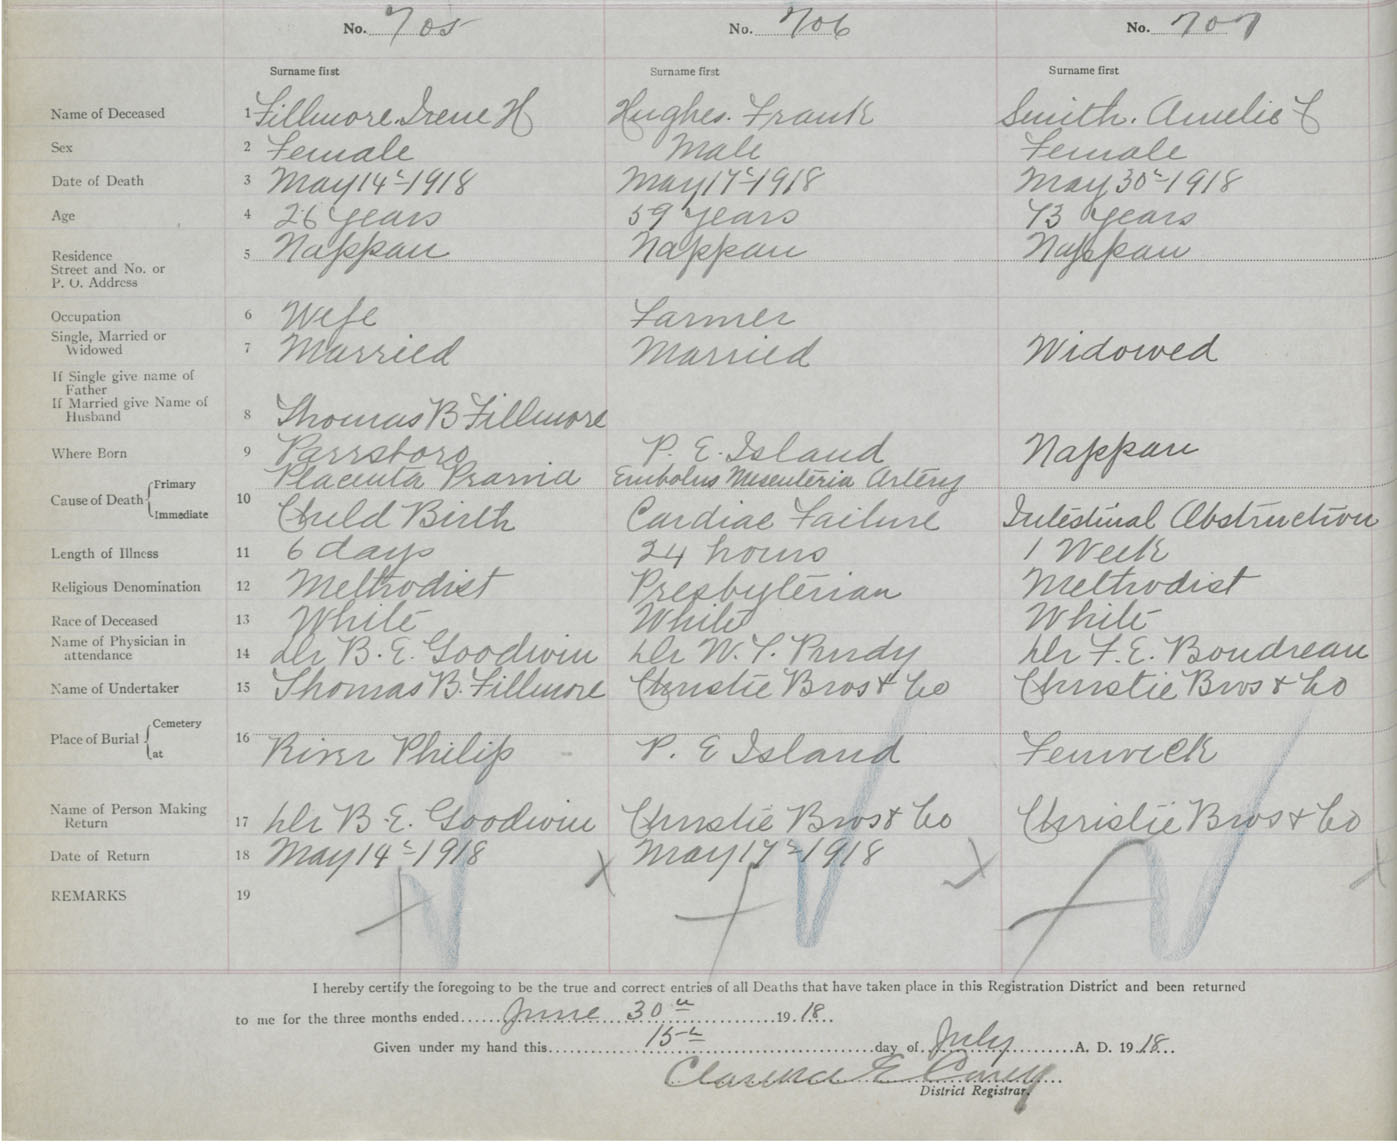 No. 705 No. 706 No. 707
Surname first Surname first Surname first
Name of Deceased 1 Fillmore. Irene H Hughes. Frank Smith. Amelie
Sex 2 Female Male Female
Date of Death 3 May 14th 1918 May 17th 1918 May 30th 1918
Age 4 26 years 59 years 73 years
Residence
Street and No. or
P. O. Address
5 Nappan Nappan Nappan
Occupation 6 Wife Farmer
Single, Married or
Widowed
7 Married Married Widowed
If Single give name of
Father
If Married give Name of
Husband
8 Thomas B Fillmore
Where Born 9 Parrsboro P. E. Island Nappan
Cause of Death Primary Placenta Pravid Embolus Mesenteria Artery
Immediate 10 Child Birth Cardiac Failure Intestinal Obstruction
Length of Illness 11 6 days 24 hours 1 Week
Religious Denomination 12 Methodist Presbyterian Methodist
Race of Deceased 13 White White White
Name of Physician in
attendance
14 Dr B. E. Goodwin Dr W. T. Purdy Dr F. E. Boudreau
Name of Undertaker 15 Thomas B. Fillmore Christie Bros & Co Christie Bros & Co
Place of Burial Cemetery
at 16 River Philip P. E Island Fenwick
Name of Person Making
Return
17 Dr B. E. Goodwin Christie Bros & Co Christie Bros & Co
Date of Return 18 May 14th 1918 May 17th 1918
REMARKS 19
I hereby certify the foregoing to be the true and correct entries of all Deaths that have taken place in this Registration District and been returned
to me for the three months ended June 30th 1918
Given under my hand this 15th day of July A. D. 1918
Clarence E
District Registrar.